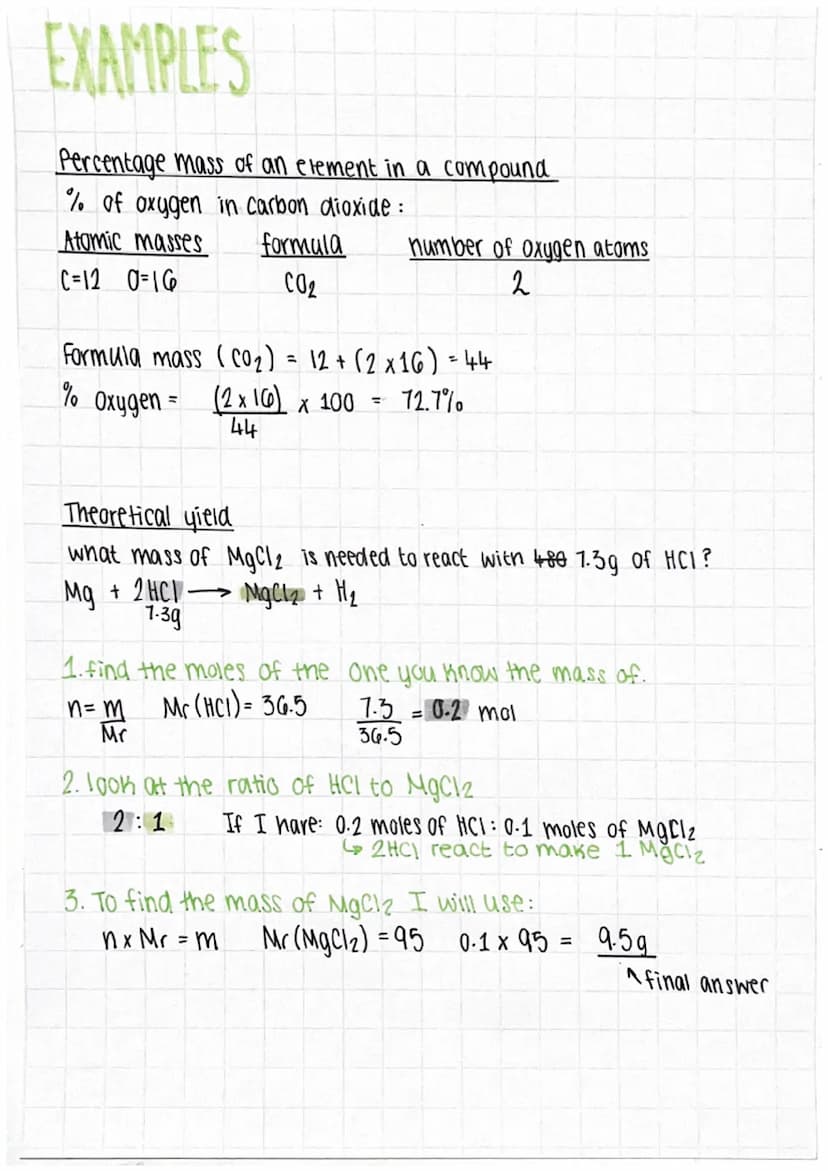 EXAMPLES
Percentage mass of an element in a compound
% of oxygen in carbon dioxide :
Atomic masses formula number of oxygen atoms
C=12 O=16 CO₂ 2
Formula mass (CO₂) = 12 + (2 x 16) = 44
% Oxygen = (2 x 16) x 100 = 72.7%
44
Theoretical yield
what mass of MgCl₂ is needed to react with 480 7.3g of HCl?
Mg + 2HCl → MgCl₂ + H₂
7.3g
1. find the moles of the one you know the mass of.
n= m Mr (HCl) = 36.5 7.3 = 0.2 mol
Mr 36.5
2. look at the ratio of HCl to MgCl₂
2 : 1 If I have: 0.2 moles of HCl : 0.1 moles of MgCl₂
↳ 2HCl react to make 1 MgCl₂
3. To find the mass of MgCl₂ I will use:
n x Mr = m Mr (MgCl₂) = 95 0.1 x 95 = 9.5g
^ final answer